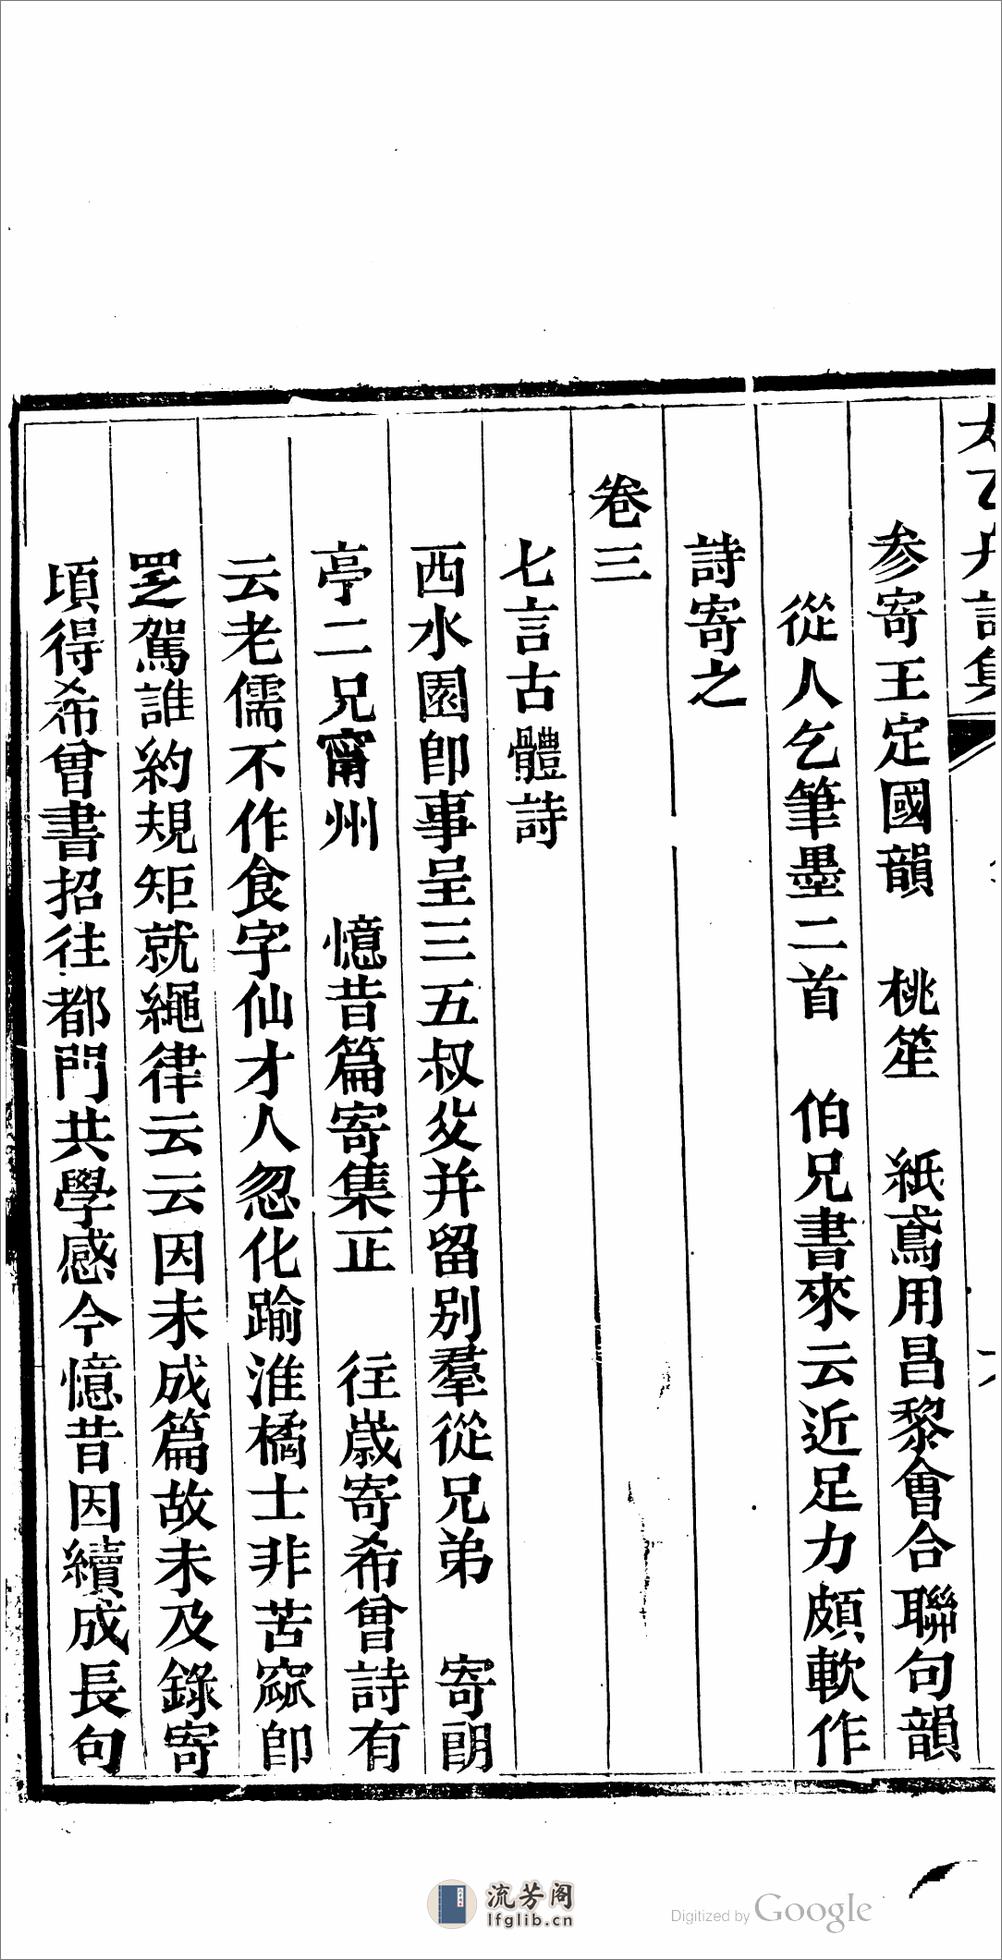 太乙舟詩集
参寄王定國韻　桃笙　紙鳶用昌黎會合聯句韻
從人乞筆墨二首　伯兄書來云近足力頗軟作
詩寄之
卷三
七言古體詩
西水園卽事呈三五叔父并留别羣從兄弟　寄朗
亭二兄甯州　憶昔篇寄集正　往歲寄希曾詩有
云老儒不作食字仙才人忽化踰淮橘士非苦窳卽
駕誰約規矩就繩律云云因未成篇故未及錄寄
頃得希曾書招往都門共學感今憶昔因續成長句
流芳阁
lfglib.cn
Digitized by Google